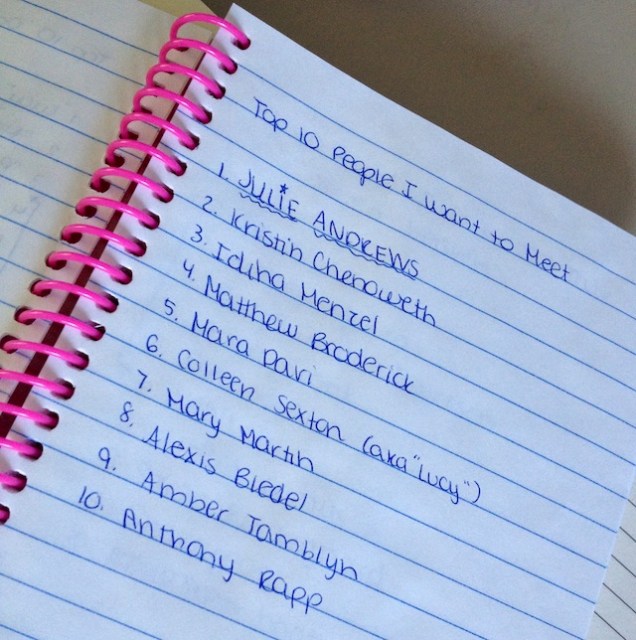 Top 10 People I Want to Meet
1. JULIE ANDREWS
2. Kristin Chenoweth
3. Idina Menzel
4. Matthew Broderick
5. Mara Davi
6. Colleen Sexton (aka "Lucy")
7. Mary Martin
8. Alexis Bledel
9. Amber Tamblyn
10. Anthony Rapp